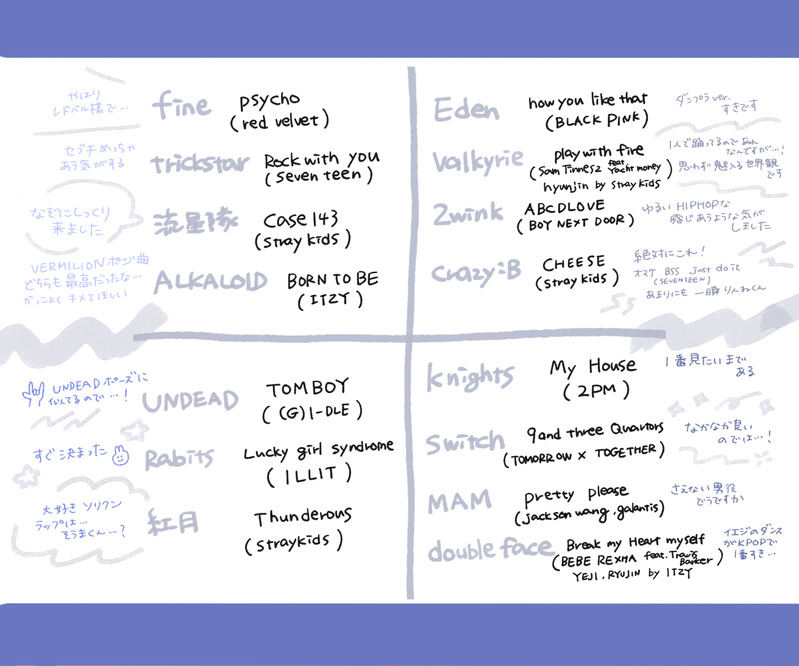 やはり
レドベル様で…
fine
psycho
(red velvet)
セブチめっちゃ
あう気がする
trickstar
Rock with you
(Seven teen)
なぞにしっくり
来ました
流星隊
Case 143
(stray kids)
VERMILION ポジ曲
どちらも最高だったな…
かっこよく キメてほしい
ALKALOID
BORN TO BE
(ITZY)
Eden
how you like that
(BLACK PINK)
ダンプラver.
すきです
Valkyrie
play with fire
(Sam Tinnesz feat. Yacht money)
hyunjin by stray kids
1人で踊ってるので
なんですが…!
思わず魅入る世界観
です
2wink
ABCDLOVE
(BOY NEXT DOOR)
ゆるい HIPHOPな
感じあうような気が
しました
Crazy:B
CHEESE
(stray kids)
絶対にこれ!
オマケ BSS just do it
(SEVENTEEN)
あまりにも 一瞬りんねくん
UNDEAD ポーズに
似てるので…!
UNDEAD
TOMBOY
((G)I-DLE)
すぐ決まった
Rabits
Lucky girl syndrome
(ILLIT)
大好き ソリクン
ラップは…
そうまくん…?
紅月
Thunderous
(straykids)
knights
My House
(2PM)
1番見たいまで
ある
Switch
9and three Quartors
(TOMORROW X TOGETHER)
なかなか良い
のでは…!
MAM
pretty please
(jackson wang, galantis)
さえない男役
どうですか
double face
Break my Heart myself
(BEBE REXHA feat. Travis Barker)
YEJI, RYUJIN by ITZY
イエジのダンス
がKPOPで
1番すき…